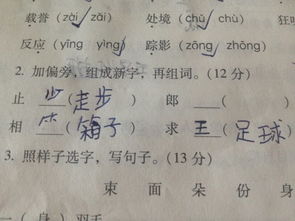 载誉（zài✓ zāi） 处境（chǔ✓ chù） 狂
反应（yīng yìng✓） 踪影（zōng✓ zhōng）
2. 加偏旁，组成新字，再组词。（12 分）
止 步（走步） 郎 （ ）
相 ⺮（箱子） 求 王（足球）
3. 照样子选字，写句子。（13 分）
束 面 朵 份 身
一（身）羽毛